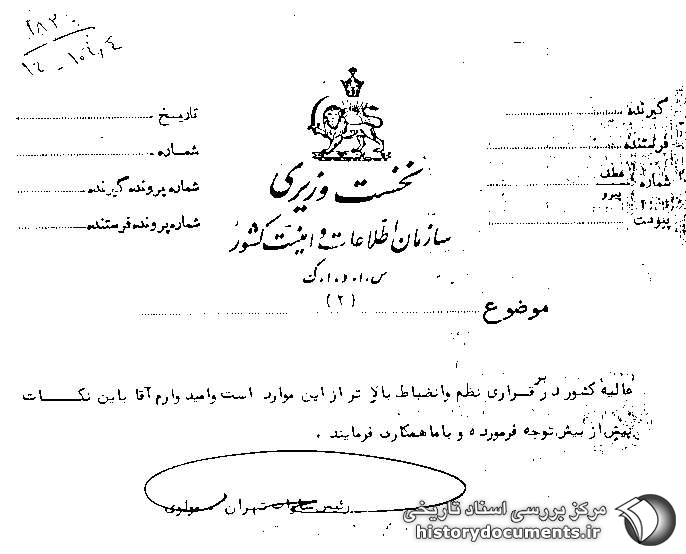 گیرنده
فرستنده
شماره عطف
پیرو
پیوست
تاریخ
شماره
شماره پرونده گیرنده
شماره پرونده فرستنده
نخست وزیری
سازمان اطلاعات و امنیت کشور
س.ا.و.ا.ک
(۲)
موضوع
عالیه کشور در برقراری نظم وانضباط بالا تر از این موارد است وامید وارم آقا باین نکات
بیش از پیش توجه فرموده و با ما همکاری فرمایند .
رئیس ساواک تهران مولوی
مرکز بررسی اسناد تاریخی
historydocuments.ir